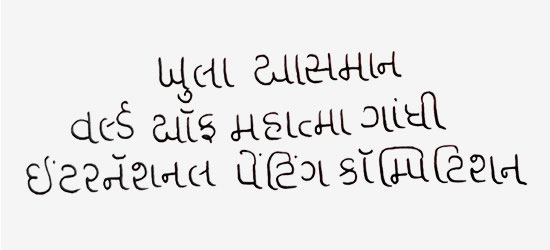 ખુલા આસમાન
વર્લ્ડ ઑફ મહાત્મા ગાંધી
ઈંટરનૅશનલ પેંટિંગ કૉમ્પિટિશન